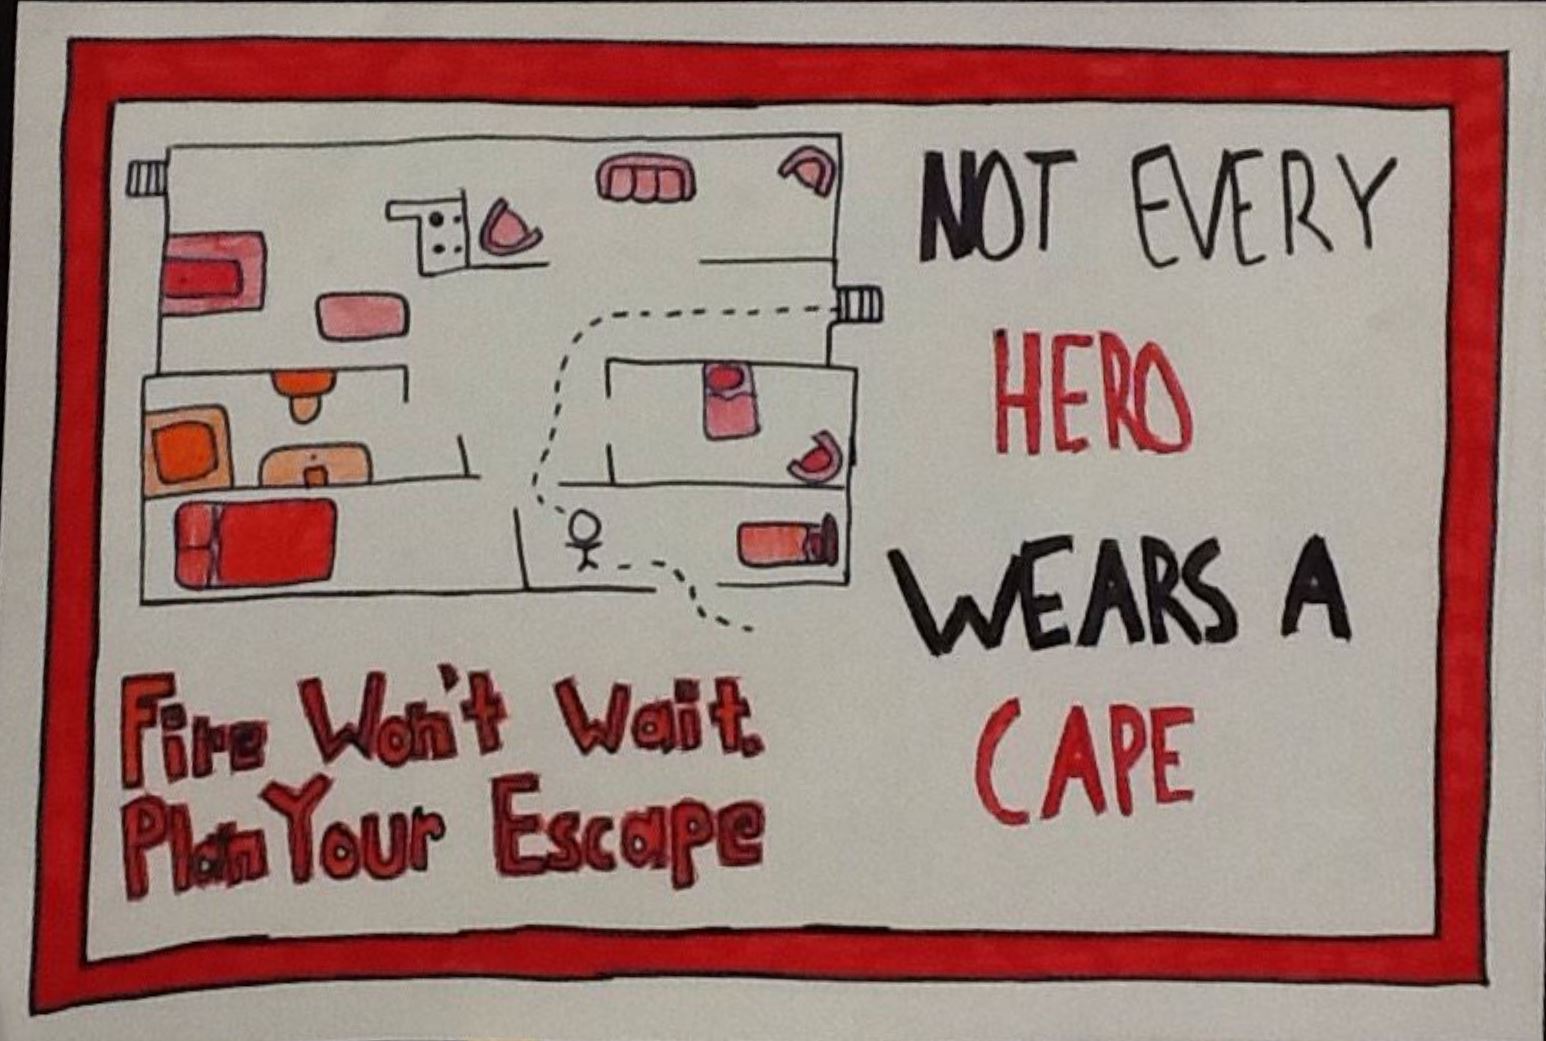 NOT EVERY
HERO
WEARS A
CAPE
Fire Won't Wait.
Plan Your Escape